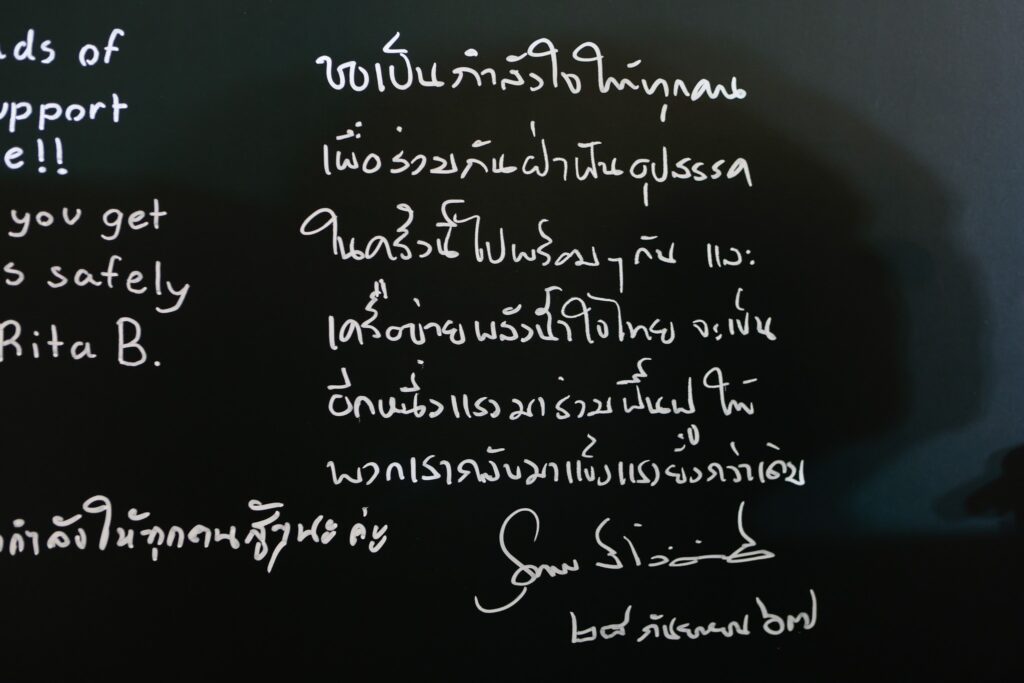 ds of
upport
e!!
you get
s safely
Rita B.
กำลังให้ทุกคนสู้ๆนะค่ะ
ขอเป็นกำลังใจให้ทุกคน
เพื่อร่วมกันฝ่าฟันอุปสรรค
ในครั้งนี้ไปพร้อมๆกัน และ
เครือข่ายพลังน้ำใจไทย จะเป็น
อีกหนึ่งแรงมาร่วมฟื้นฟู ให้
พวกเรากลับมาแข็งแรงยิ่งกว่าเดิม
๒๘ กันยายน ๖๗